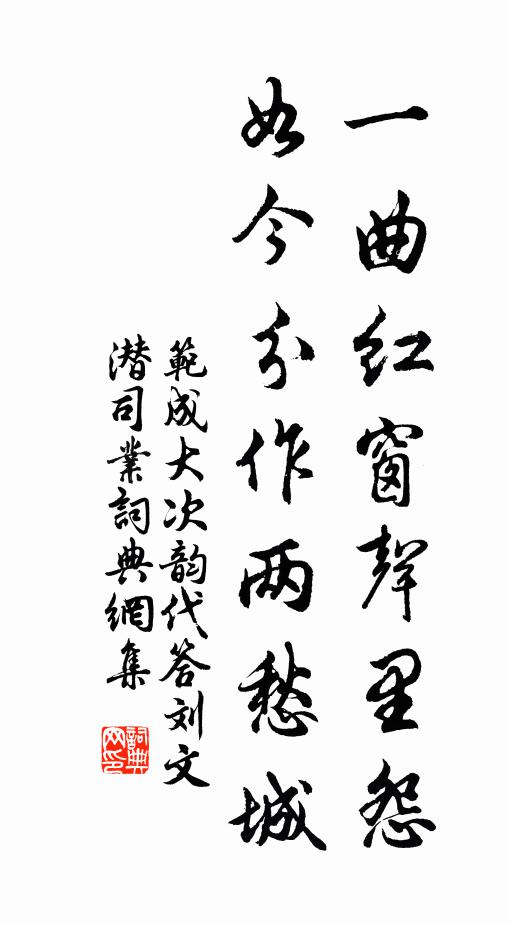 一曲红窗聲里怨
如今分作两愁城
範成大次韵代答刘文
潜司業詞典網集
詞典
网印